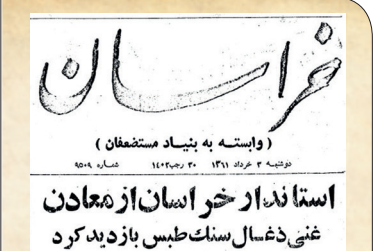 خراسان
( وابسته به بنیاد مستضعفان )
دوشنبه ۳ خرداد ۱۳۶۱ ۳۰ رجب ۱۴۰۲ شماره ۹۵۰۹
استاندار خراسان از معادن
غنی ذغال سنگ طبس بازدید کرد